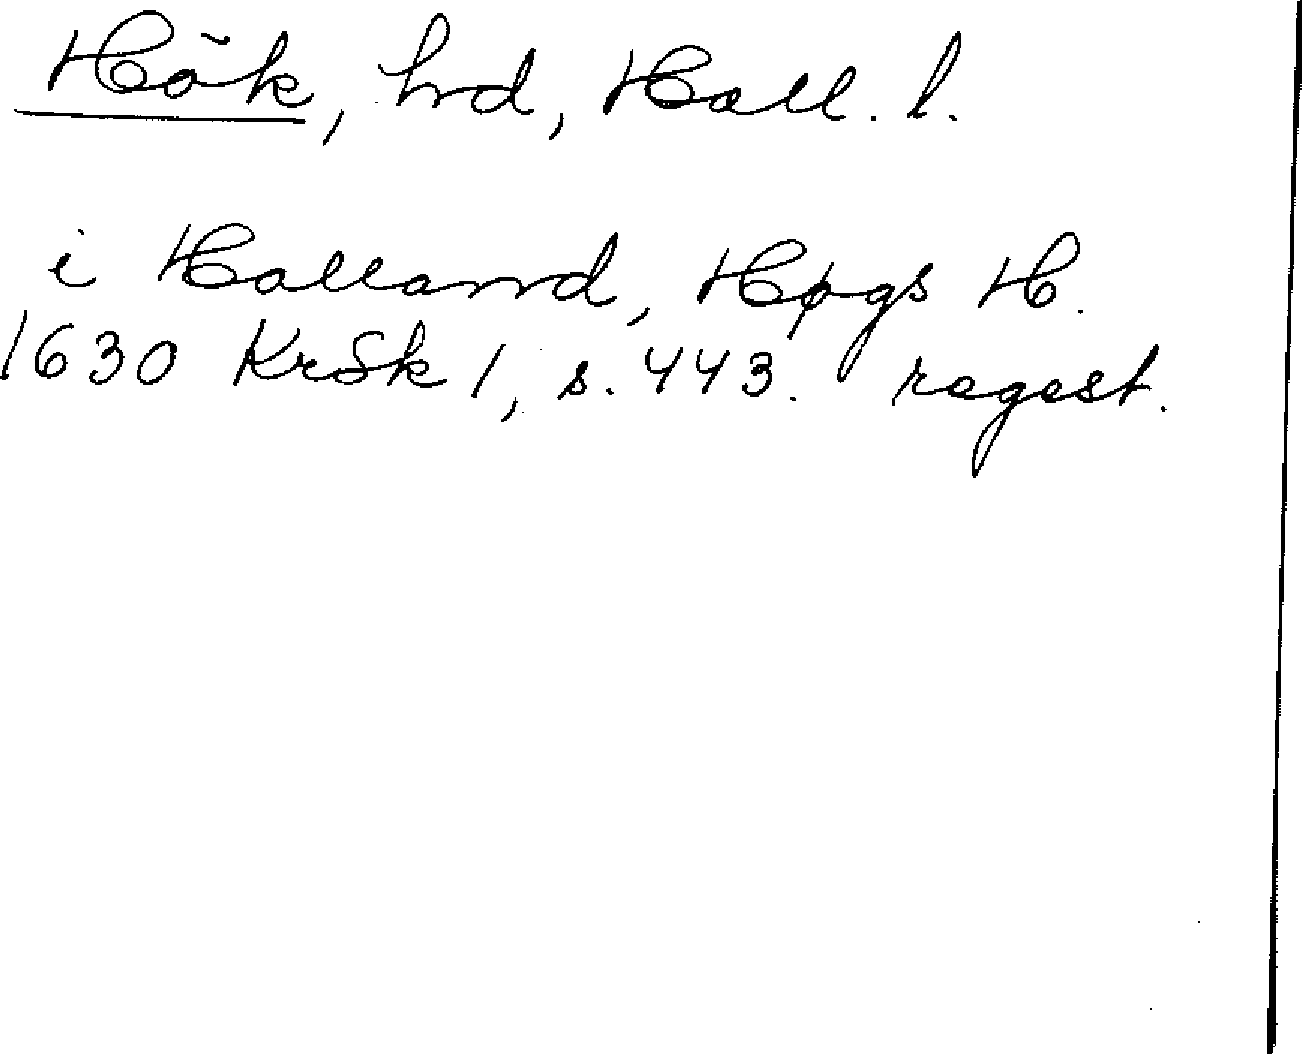 Hök, hrd, Hall. l.
i Halland, Høgs H.
1630 KrSk 1, s. 443. regest.